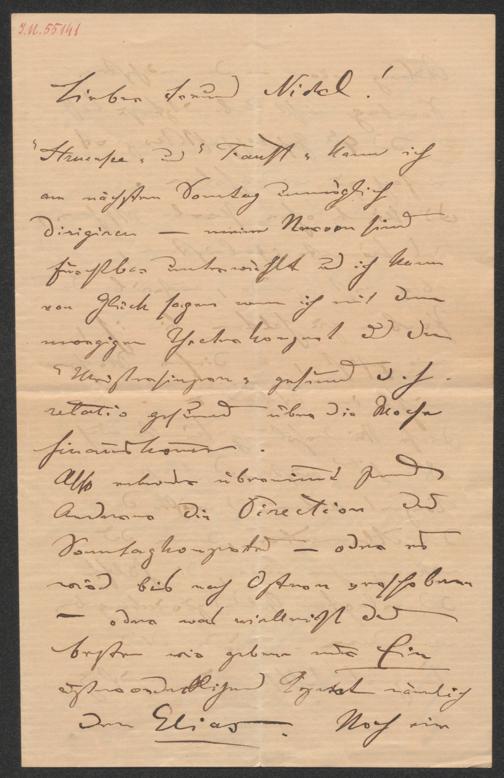 I.N. 55141
Lieber Freund Nickel!
"Struensee" u "Faust" kann ich
am nächsten Sonntag unmöglich
dirigiren — meine Nerven sind
furchtbar unterwühlt u ich kann
von Glück sagen wenn ich mit dem
morgigen Extrakonzert u den
"Meistersingern" gesund d. h.
relativ gesund über die Woche
hinauskomme.
Also entweder übernimmt Jemand
Anderes die Direction des
Sonntagkonzertes — oder es
wird bis nach Ostern verschoben
— oder was vielleicht das
beste wir geben nur Ein
nämlich
den Elias. Noch ein